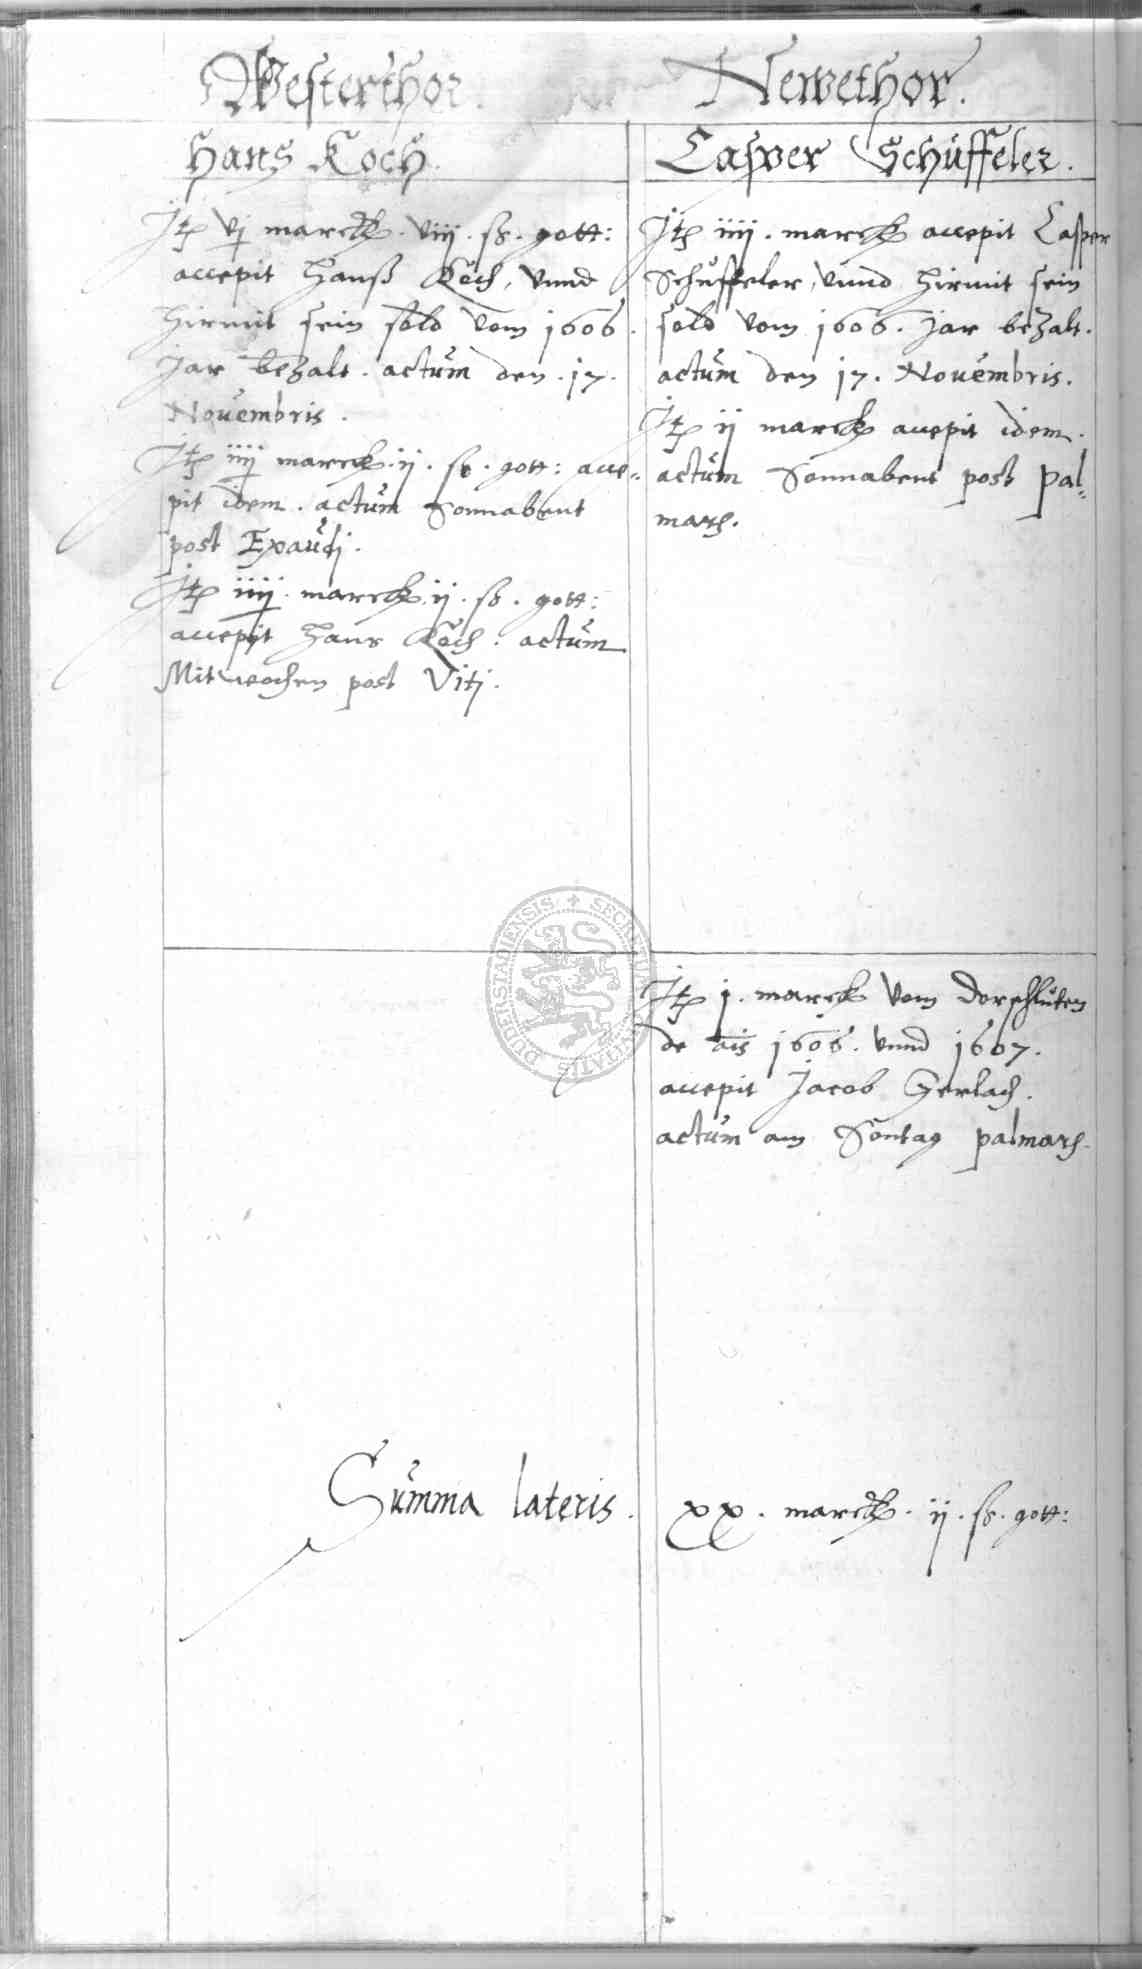 Westerthor.
Hans Koch.
Jtꝫ vj marck. viij. ß. gott:
accepit Hanß Koch, vnnd
hirmit sein sold vom 1606.
Jar bezalt. actum den. 17.
Nouembris.
Jtꝫ iiij marck. ij. ß. gott: acce-
pit idem. actum Sonnabent
post Exaudj.
Jtꝫ iiij. marck. ij. ß. gott:
accepit Hans Koch. actum
Mitwochen post Vitj.
Newethor.
Casper Schüffeler.
Jtꝫ iiij. marck accepit Casper
Schüffeler, vnnd hirmit sein
sold vom 1606. Jar bezalt.
actum den 17. Nouembris.
Jtꝫ ij marck accepit idem.
actum Sonnabent post Pal-
mar.
Jtꝫ j. marck vom dorschluten
de ais 1606. vnnd 1607.
accepit Jacob Gerlach.
actum am Sontag palmar.
Summa lateris. xx. marck. ij. ß. gott:
SECRETUM CIVITATIS DUDERSTADIENSIS